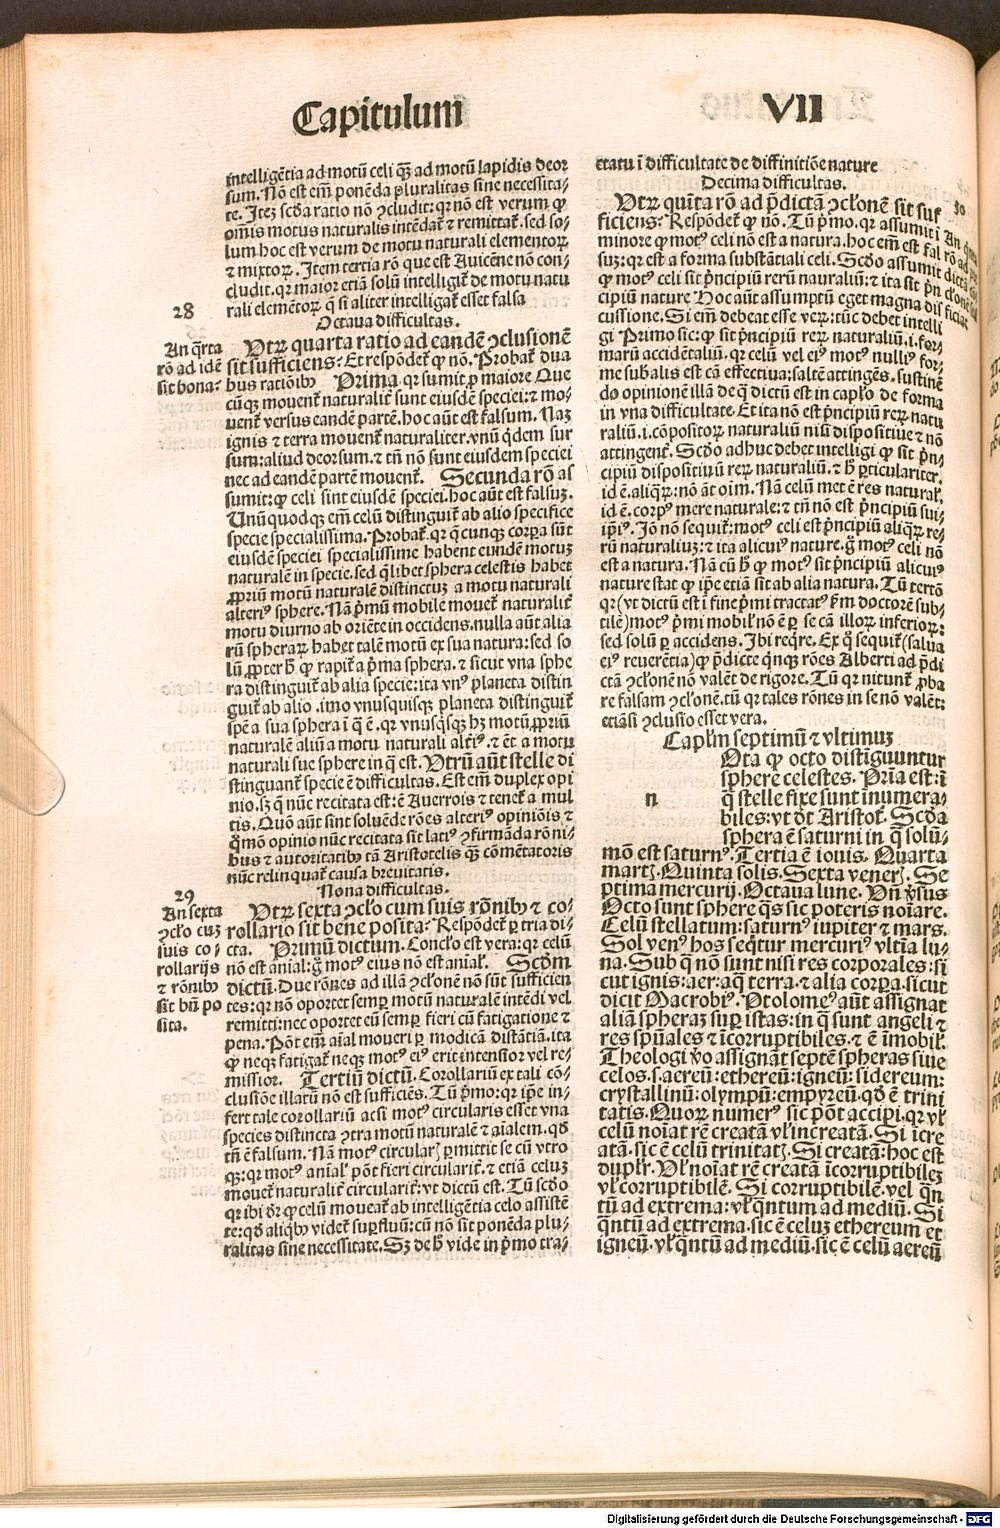 Capitulum VII
intelligẽtia ad motũ celi q̃ꝫ ad motũ lapidis deor
sum. Nõ est em̃ ponẽda pluralitas sine necessita-
te. Iteʒ scđa ratio nõ ꝯcludit: qꝛ nõ est verum ꝙ
om̃is motus naturalis intẽdat̃ ⁊ remittat̃. sed so-
lum hoc est verum de motu naturali elementoꝝ
⁊ mixtoꝝ. Item tertia rõ que est Auicẽne nõ con-
cludit. qꝛ maior etiã solũ intelligit̃ de motu natu
rali elemẽtoꝝ q̃ si aliter intelligat̃ esset falsa
28
Octaua difficultas.
An q̃rta
rõ ad idẽ
sit bona-
Vtꝝ quarta ratio ad eandẽ ꝯclusionẽ
sit sufficiens: Et respõdet̃ ꝙ nõ. Probat̃ dua
bus ratiõibꝰ Prima. qꝛ sumit ꝓ maiore Que
cũqꝫ mouent̃ naturalit̃ sunt eiusdẽ speciei: ⁊ mo-
uent̃ versus eandẽ partẽ. hoc aũt est falsum. Naʒ
ignis ⁊ terra mouent̃ naturaliter. vnũ q̃dem sur
sum: aliud deorsum. ⁊ tñ nõ sunt eiusdem speciei
nec ad eandẽ partẽ mouent̃. Secunda rõ as
sumit: ꝙ celi sint eiusdẽ speciei. hoc aũt est falsuʒ.
Vnũ quodqꝫ em̃ celũ distinguit̃ ab alio specifice
specie specialissima. Probat̃. qꝛ q̃cunqꝫ corpa sũt
eiusdẽ speciei specialissime habent eundẽ motuʒ
naturalẽ in specie. sed q̃libet sphera celestis habet
ꝓpriũ motũ naturalẽ distinctuʒ a motu naturali
alteriꝰ sphere. Nã p̃mũ mobile mouet̃ naturalit̃
motu diurno ab oriẽte in occidens. nulla aũt alia
rũ spheraꝝ habet talẽ motũ ex sua natura: sed so
lũ ꝓpter h̃ ꝙ rapit̃ a p̃ma sphera. ⁊ sicut vna sphe
ra distinguit̃ ab alia specie: ita vnꝰ planeta distin
guit̃ ab alio. imo vnusquisqꝫ planeta distinguit̃
spẽ a sua sphera ĩ q̃ ẽ. qꝛ vnusq̃sqꝫ hʒ motũ ꝓpriũ
naturalẽ aliũ a motu naturali alt̃iꝰ. ⁊ ẽt a motu
naturali sue sphere in q̃ est. Vtrũ aũt stelle di
stinguant̃ specie ẽ difficultas. Est em̃ duplex opi
nio. sʒ q̃ nũc recitata est: ẽ Auerrois ⁊ tenet̃ a mul
tis. Quõ aũt sint soluẽde rões alteriꝰ opiniõis ⁊
q̃mõ opinio nũc recitata sit latiꝰ ꝯfirmãda rõni-
bus ⁊ autoritatibꝰ tã Aristotelis q̃ꝫ cõmẽtatoris
nũc relinquat̃ causa breuitatis.
29
Nona difficultas.
An sexta
ꝯclo cuʒ
suis co-
rollarijs
⁊ rõnibꝰ
sit bñ po
sita.
Vtꝝ sexta ꝯclo cum suis rõnibꝰ ⁊ co-
rollario sit bene posita: Respõdet̃ ꝑ tria di-
cta. Primũ dictum. Conclo est vera: qꝛ celũ
nõ est anial: g̃ motꝰ eius nõ est anial̃. Scđm
dictũ. Due rõnes ad illã ꝯclonẽ nõ sũt sufficien
tes: qꝛ nõ oportet semꝑ motũ naturalẽ intẽdi vel
remitti: nec oportet eũ semꝑ fieri cũ fatigatione ⁊
pena. Põt em̃ aĩal moueri ꝑ modicã distãtiã. ita
ꝙ neqꝫ fatigat̃ neqꝫ motꝰ eiꝰ erit intensior vel re-
missior. Tertiũ dictũ. Corollariũ ex tali cõ-
clusiõe illatũ nõ est sufficiẽs. Tũ p̃mo: qꝛ ip̃e in-
fert tale corollariũ acsi motꝰ circularis esset vna
species distincta ꝯtra motũ naturalẽ ⁊ aĩalem. qđ
tñ ẽ falsum. Nã motꝰ circularʒ ꝑmittit se cũ vtro
qꝫ: qꝛ motꝰ anial̃ põt fieri circularit̃. ⁊ etiã celuʒ
mouet̃ naturalit̃ circularit̃: vt dictũ est. Tũ scđo
qꝛ ibi dꝛ ꝙ celũ moueat̃ ab intelligẽtia celo assistẽ
te: qđ aliqbꝰ videt̃ suꝑfluũ: cũ nõ sit ponẽda plu-
ralitas sine necessitate. Sʒ de h̃ vide in p̃mo tra-
ctatu ĩ difficultate de diffinitiõe nature
Decima difficultas.
30
Vtꝝ quĩta rõ ad p̃dictã ꝯclonẽ sit suf
ficiens: Respõdet̃ ꝙ nõ. Tũ p̃mo. qꝛ assumit ĩ
minore ꝙ motꝰ celi nõ est a natura. hoc em̃ est fal
suʒ: qꝛ est a forma substãtiali celi. Scđo assumit
ꝙ motꝰ celi sit p̃ncipiũ rerũ nauraliũ: ⁊ ita sit p̃n
cipiũ nature Hoc aũt assumptũ eget magna dis
cussione. Si em̃ debeat esse veꝝ: tũc debet intelli
gi Primo sic: ꝙ sit p̃ncipiũ reꝝ naturaliũ. i. for-
maꝝ accidẽtaliũ. qꝛ celũ vel eiꝰ motꝰ nulliꝰ for-
me sub̃alis est cã effectiua: saltẽ attingẽs. sustinẽ
do opinionẽ illã de q̃ dictũ est in cap̃lo de forma
in vna difficultate. Et ita nõ est p̃ncipiũ reꝝ natu
raliũ. i. cõpositoꝝ naturaliũ nisi dispositiue ⁊ nõ
attingent̃. Scđo adhuc debet intelligi ꝙ sit p̃n-
cipiũ dispositiuũ reꝝ naturaliũ. ⁊ h̃ ꝑticulariter.
id ẽ. aliq̃ꝝ: nõ ãt oĩm. Nã celũ met ẽ res natural̃.
id ẽ. corpꝰ mere naturale: ⁊ tñ nõ est p̃ncipiũ sui-
ip̃iꝰ. Iõ nõ sequit̃: motꝰ celi est p̃ncipiũ aliq̃ꝝ re-
rũ naturaliuʒ: ⁊ ita alicuiꝰ nature. g̃ motꝰ celi nõ
est a natura. Nã cũ h̃ ꝙ motꝰ sit p̃ncipiũ alicuiꝰ
nature stat ꝙ ip̃e etiã sit ab alia natura. Tũ tertõ
qꝛ (vt dictũ est ĩ fine p̃mi tractatꝰ ẜm doctorẽ sub-
tilẽ) motꝰ p̃mi mobil̃ nõ ẽ ꝑ se cã illoꝝ inferioꝝ:
sed solũ ꝑ accidens. Ibi req̃re. Ex q̃ sequit̃ (salua
eiꝰ reuerẽtia) ꝙ p̃dicte q̃nqꝫ rões Alberti ad p̃di
ctã ꝯclonẽ nõ valẽt de rigore. Tũ qꝛ nitunt̃ ꝓba
re falsam ꝯclonẽ. tũ qꝛ tales rõnes in se nõ valẽt:
etiãsi ꝯclusio esset vera.
Capl̃m septimũ ⁊ vltimuʒ
n
Ota ꝙ octo distĩguuntur
sphere celestes. Pria est: ĩ
q̃ stelle fixe sunt ĩnumera-
biles: vt đt Aristot̃. Scđa
sphera ẽ saturni in q̃ solũ-
mõ est saturnꝰ. Tertia ẽ iouis. Quarta
martʒ. Quinta solis. Sexta venerʒ. Se
ptima mercurij. Octaua lune. Vñ v̓sus
Octo sunt sphere q̃s sic poteris noĩare.
Celũ stellatum: saturnꝰ iupiter ⁊ mars.
Sol venꝰ hos seq̃tur mercuriꝰ vltĩa lu-
na. Sub q̃ nõ sunt nisi res corporales: si
cut ignis: aer: aq̃ terra. ⁊ alia corpa. sicut
dicit Macrobiꝰ. Ptolomeꝰ aũt assignat
aliã spheraʒ suꝑ istas: in q̃ sunt angeli ⁊
res sp̃uales ⁊ ĩcorruptibiles. ⁊ ẽ ĩmobil̃.
Theologi v̓o assignãt septẽ spheras siue
celos. s. aereũ: ethereũ: igneũ: sidereum:
crystallinũ: olympũ: empyreũ: qđ ẽ trini
tatis. Quoꝝ numerꝰ sic põt accipi. qꝛ vl̃
celũ noĩat rẽ creatã vl̃ increatã. Si ĩcre
atã. sic ẽ celũ trinitatʒ. Si creatã: hoc est
dupl̃r. Vl̃ noĩat rẽ creatã ĩcorruptibileʒ
vl̃ corruptibilẽ. Si corruptibilẽ. vel q̃n
tũ ad extrema: vl̃ q̃ntum ad mediũ. Si
q̃ntũ ad extrema. sic ẽ celuʒ ethereum et
igneũ. vl̃ q̃ntũ ad mediũ. sic ẽ celũ aereũ
Digitalisierung gefördert durch die Deutsche Forschungsgemeinschaft - DFG